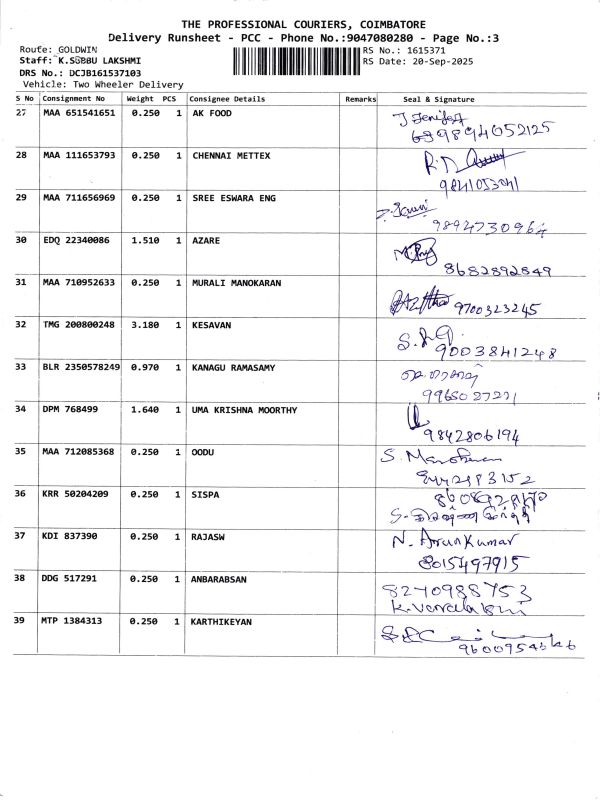 THE PROFESSIONAL COURIERS, COIMBATORE
Delivery Runsheet - PCC - Phone No.:9047080280 - Page No.:3
Route: GOLDWIN
RS No.: 1615371
Staff: K.SUBBU LAKSHMI
RS Date: 20-Sep-2025
DRS No.: DCJB161537103
Vehicle: Two Wheeler Delivery
S No Consignment No Weight PCS Consignee Details Remarks Seal & Signature
27 MAA 651541651 0.250 1 AK FOOD
28 MAA 111653793 0.250 1 CHENNAI METTEX
29 MAA 711656969 0.250 1 SREE ESWARA ENG
9894730964
30 EDQ 22340086 1.510 1 AZARE
8682892849
31 MAA 710952633 0.250 1 MURALI MANOKARAN
9700323245
32 TMG 200800248 3.180 1 KESAVAN
9003841248
33 BLR 2350578249 0.970 1 KANAGU RAMASAMY
34 DPM 768499 1.640 1 UMA KRISHNA MOORTHY
9842806194
35 MAA 712085368 0.250 1 OODU
36 KRR 50204209 0.250 1 SISPA
37 KDI 837390 0.250 1 RAJASW
N. ArunKumar
8015497915
38 DDG 517291 0.250 1 ANBARABSAN
8270988753
39 MTP 1384313 0.250 1 KARTHIKEYAN